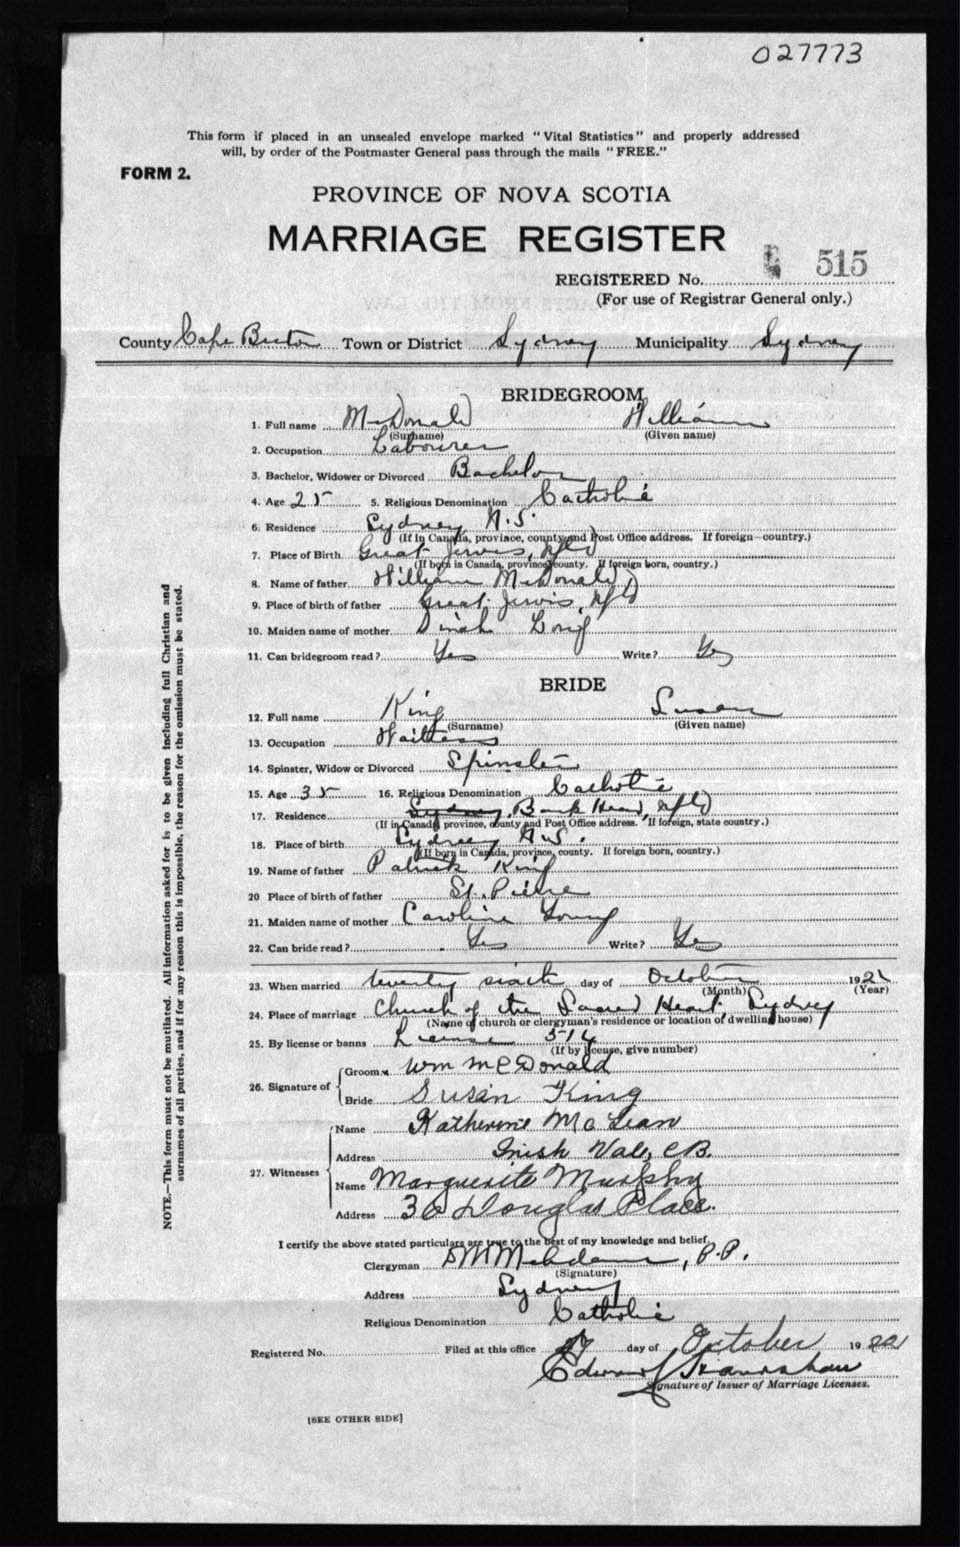 027773
This form if placed in an unsealed envelope marked "Vital Statistics" and properly addressed
will, by order of the Postmaster General pass through the mails "FREE."
FORM 2.
PROVINCE OF NOVA SCOTIA
MARRIAGE REGISTER
REGISTERED No. 515
(For use of Registrar General only.)
County Cape Breton Town or District Sydney Municipality Sydney
BRIDEGROOM
1. Full name McDonald William
(Surname) (Given name)
2. Occupation Labourer
3. Bachelor, Widower or Divorced Bachelor
4. Age 25 5. Religious Denomination Catholic
6. Residence Sydney N.S.
(If in Canada, province, county and Post Office address. If foreign—country.)
7. Place of Birth Great Jervis, Nfld
(If born in Canada, province, county. If foreign born, country.)
8. Name of father William McDonald
9. Place of birth of father Great Jervis, Nfld
10. Maiden name of mother Dinah
11. Can bridegroom read? Yes Write? Yes
BRIDE
12. Full name King Susan
(Surname) (Given name)
13. Occupation Waitress
14. Spinster, Widow or Divorced Spinster
15. Age 35 16. Religious Denomination Catholic
17. Residence Sydney, Bank Head, Nfld
(If in Canada, province, county and Post Office address. If foreign, state country.)
18. Place of birth Sydney N.S.
(If born in Canada, province, county. If foreign born, country.)
19. Name of father Patrick King
20 Place of birth of father St. Pierre
21. Maiden name of mother Caroline Young
22. Can bride read? Yes Write? Yes
23. When married twenty sixth day of October 1922
(Month) (Year)
24. Place of marriage Church of the Sacred Heart, Sydney
(Name of church or clergyman's residence or location of dwelling house)
25. By license or banns License 514
(If by license, give number)
26. Signature of Groom Wm McDonald
Bride Susan King
27. Witnesses Name Katherine McLean
Address Irish Vale, C.B.
Name Marguerite Murphy
Address Douglas Place.
I certify the above stated particulars are true to the best of my knowledge and belief,
Clergyman P.P.
(Signature)
Address Sydney
Religious Denomination Catholic
Registered No. Filed at this office 27 day of October 1922
Edward
Signature of Issuer of Marriage Licenses.
[SEE OTHER SIDE]
NOTE.—This form must not be mutilated. All information asked for is to be given including full Christian and
surnames of all parties, and if for any reason this is impossible, the reason for the omission must be stated.